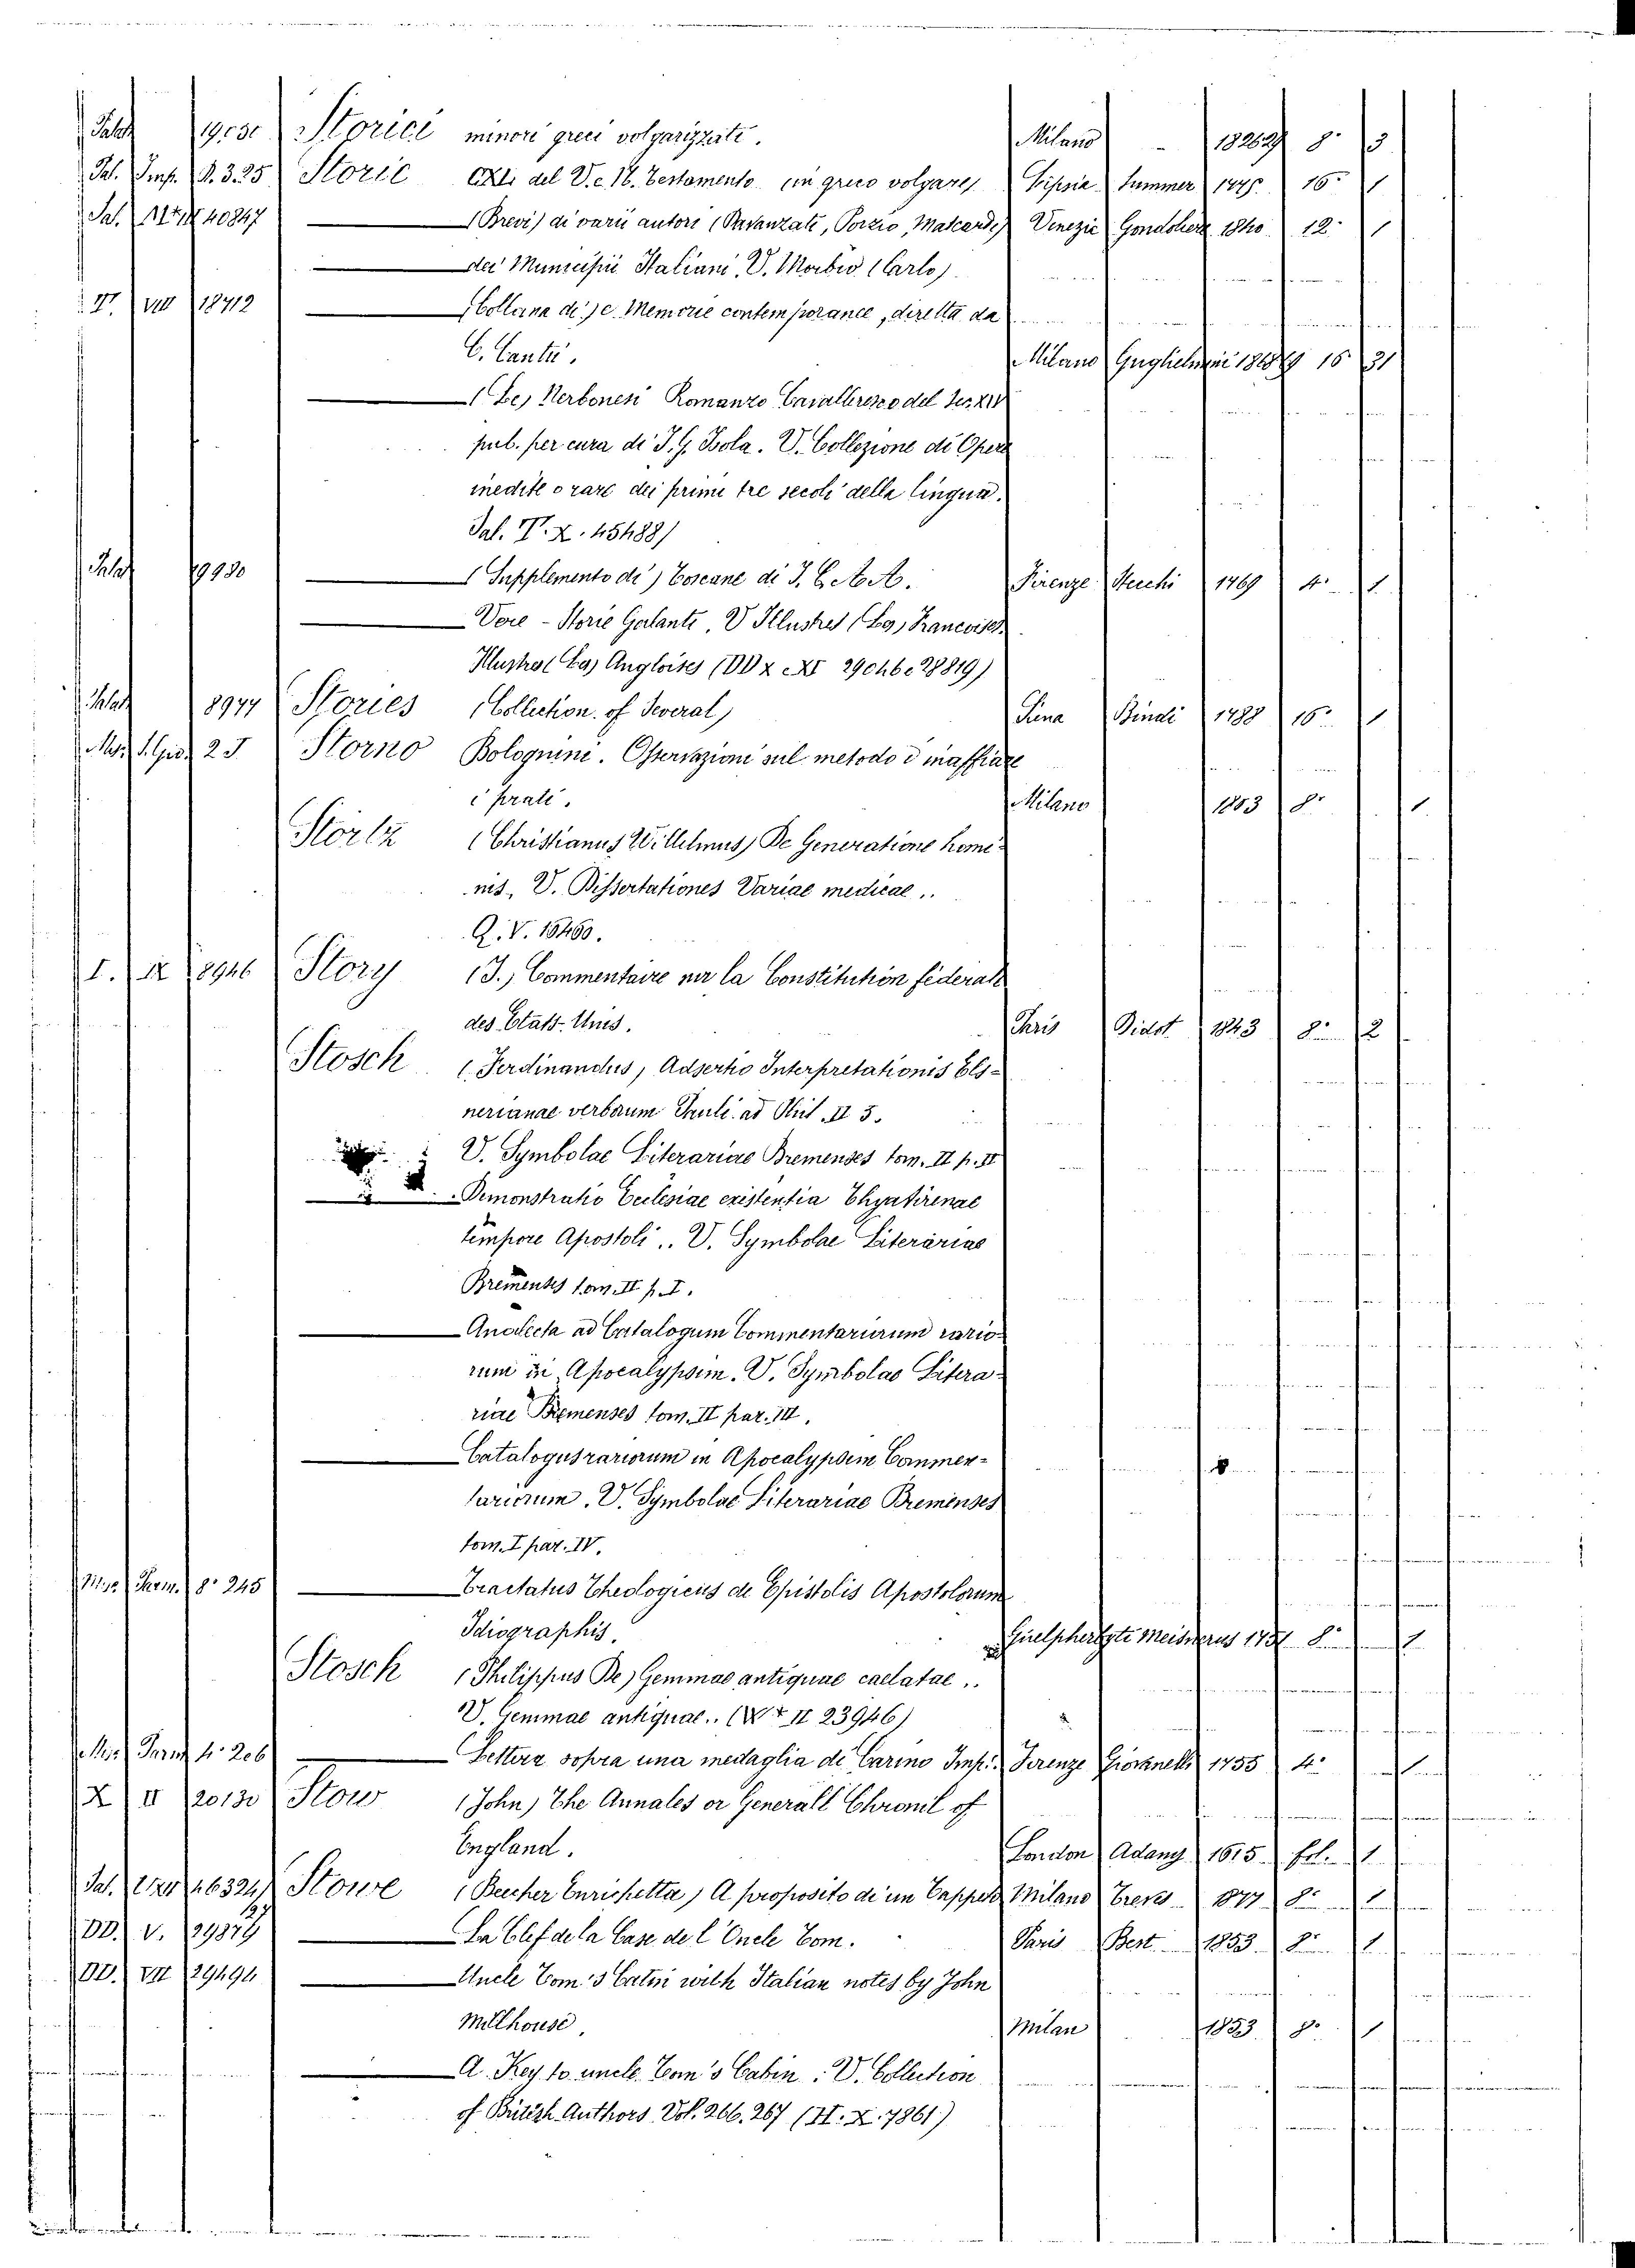 Palat 19030 Storici minori greci volgarizzati. Milano - 1826 29 8° 3
Sal. Imp. P. 3.25 Storie del V. e N. Testamento in greco volgare Lipsia Summer 16° 1
Sal. 40847 (Brevi) di varii autori (Davanzati, Porzio, Mascardi) Venezia Gondolier 1840 12° 1
dei Municipii Italiani, V. Morbio (Carlo)
VIII 18712 (Collana di) e Memorie contemporanee, diretta da
C. Cantù. Milano Guglielmini 16° 31
(Le) Nerbonesi Romanzo Cavalleresco del Sec. XIV
pub. per cura di I. G. Isola. V. Collezione di Opere
inedite o rare dei primi tre secoli della lingua.
Sal. V. X. 45488)
Palat 19980 (Supplemento di) Toscane di Firenze Vecchi 1769 4° 1
Vere - Storie Galanti, V. Illustres (Les) Francoises
Illustres (Les) Angloises (DD X XI 29ch be 28819)
Palat 8977 Stories (Collection of Several) Siena Bindi 1788 16° 1
23 Storno Bolognini. Osservazioni sul metodo d'inaffiare
i prati. Milano 1803 8° 1
Störtz (Christianus Willelmus) De Generatione homi-
nis, V. Dissertationes Variae medicae..
Q. V. 15460.
I. IX 8946 Story (J.) Commentaire sur la Constitution féderale
des Etats-Unis. Paris Didot 1843 8° 2
Stosch (Ferdinandus) Adsertio Interpretationis Els-
nerianae verborum Pauli ad II 3.
V. Symbolae Literariae Bremenses tom. II p. II
Demonstratio Ecclesiae existentia Thyatirenae
tempore Apostoli.. V. Symbolae Literariae
Bremenses tom. II p. I.
Analecta ad Catalogum Commentariorum rario-
rum in Apocalypsim. V. Symbolae Litera-
riae Bremenses tom. II par. III.
Catalogus rariorum in Apocalypsim Commen-
tariorum. V. Symbolae Literariae Bremenses
tom. I par. IV.
8° 245 Tractatus Theologicus de Epistolis Apostolorum
Idiographis. Meisnerus 1751 8° 1
Stosch (Philippus De) Gemmae antiquae caelatae..
V. Gemmae antiquae.. (II 23946)
4° 206 Lettera sopra una medaglia di Carino Imp. Firenze Giovanelli 1755 4° 1
X II 20130 Stow (John) The Annales or Generall Chronil of
England. London Adang 1615 fol. 1
Sal. 46324 Stowe (Beecher Enrichetta) A proposito di un Tappeto Milano Treves 1877 8° 1
DD. V. La Clef de la Case de l'Oncle Tom. Paris Best 1853 8° 1
DD. VII 29494 Uncle Tom's Cabin with Italian notes by John
Millhouse. Milan 1853 8° 1
A Key to uncle Tom's Cabin. V. Collection
of British Authors Vol. 266. 267 (II. X. 7861)